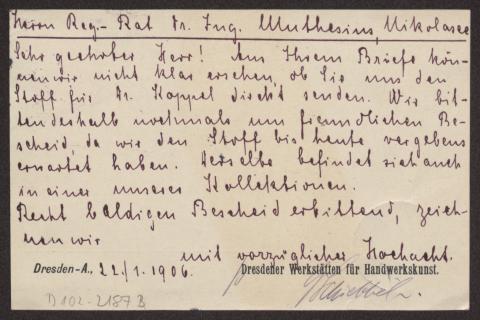 Herrn Reg.- Rat Dr. Ing. Muthesius, Nikolassee
Sehr geehrter Herr! Aus Ihrem Briefe kön-
nen wir nicht klar ersehen, ob Sie uns den
Stoff für Dr. Koppel direkt senden. Wir bit-
ten deshalb nochmals um freundlichen Be-
scheid, da wir den Stoff bis heute vergebens
erwartet haben. Derselbe befindet sich auch
in einer unserer Kollektionen.
Recht baldigen Bescheid erbittend, zeich-
nen wir
mit vorzüglicher Hochacht.
Dresden-A., 22./1. 1906. Dresdener Werkstätten für Handwerkskunst.
D 102-2187 B